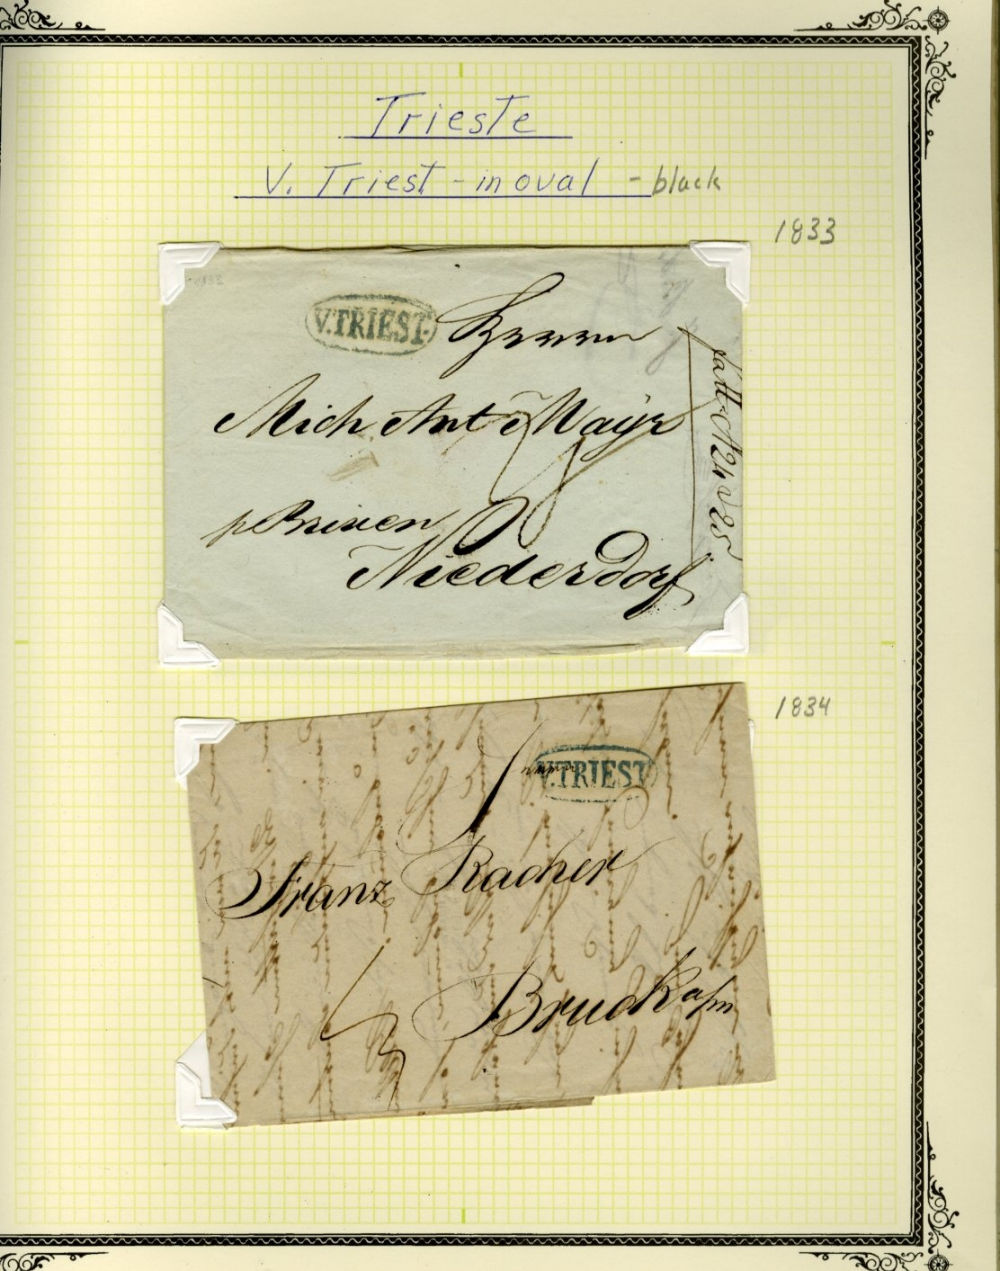 Trieste
V. Triest - in oval - black
1833
V. TRIEST.
Herrn
Mich Ant Mayr
p Brixen
Niederdorf
1834
V. TRIEST
Franz Racher
Bruck a/m